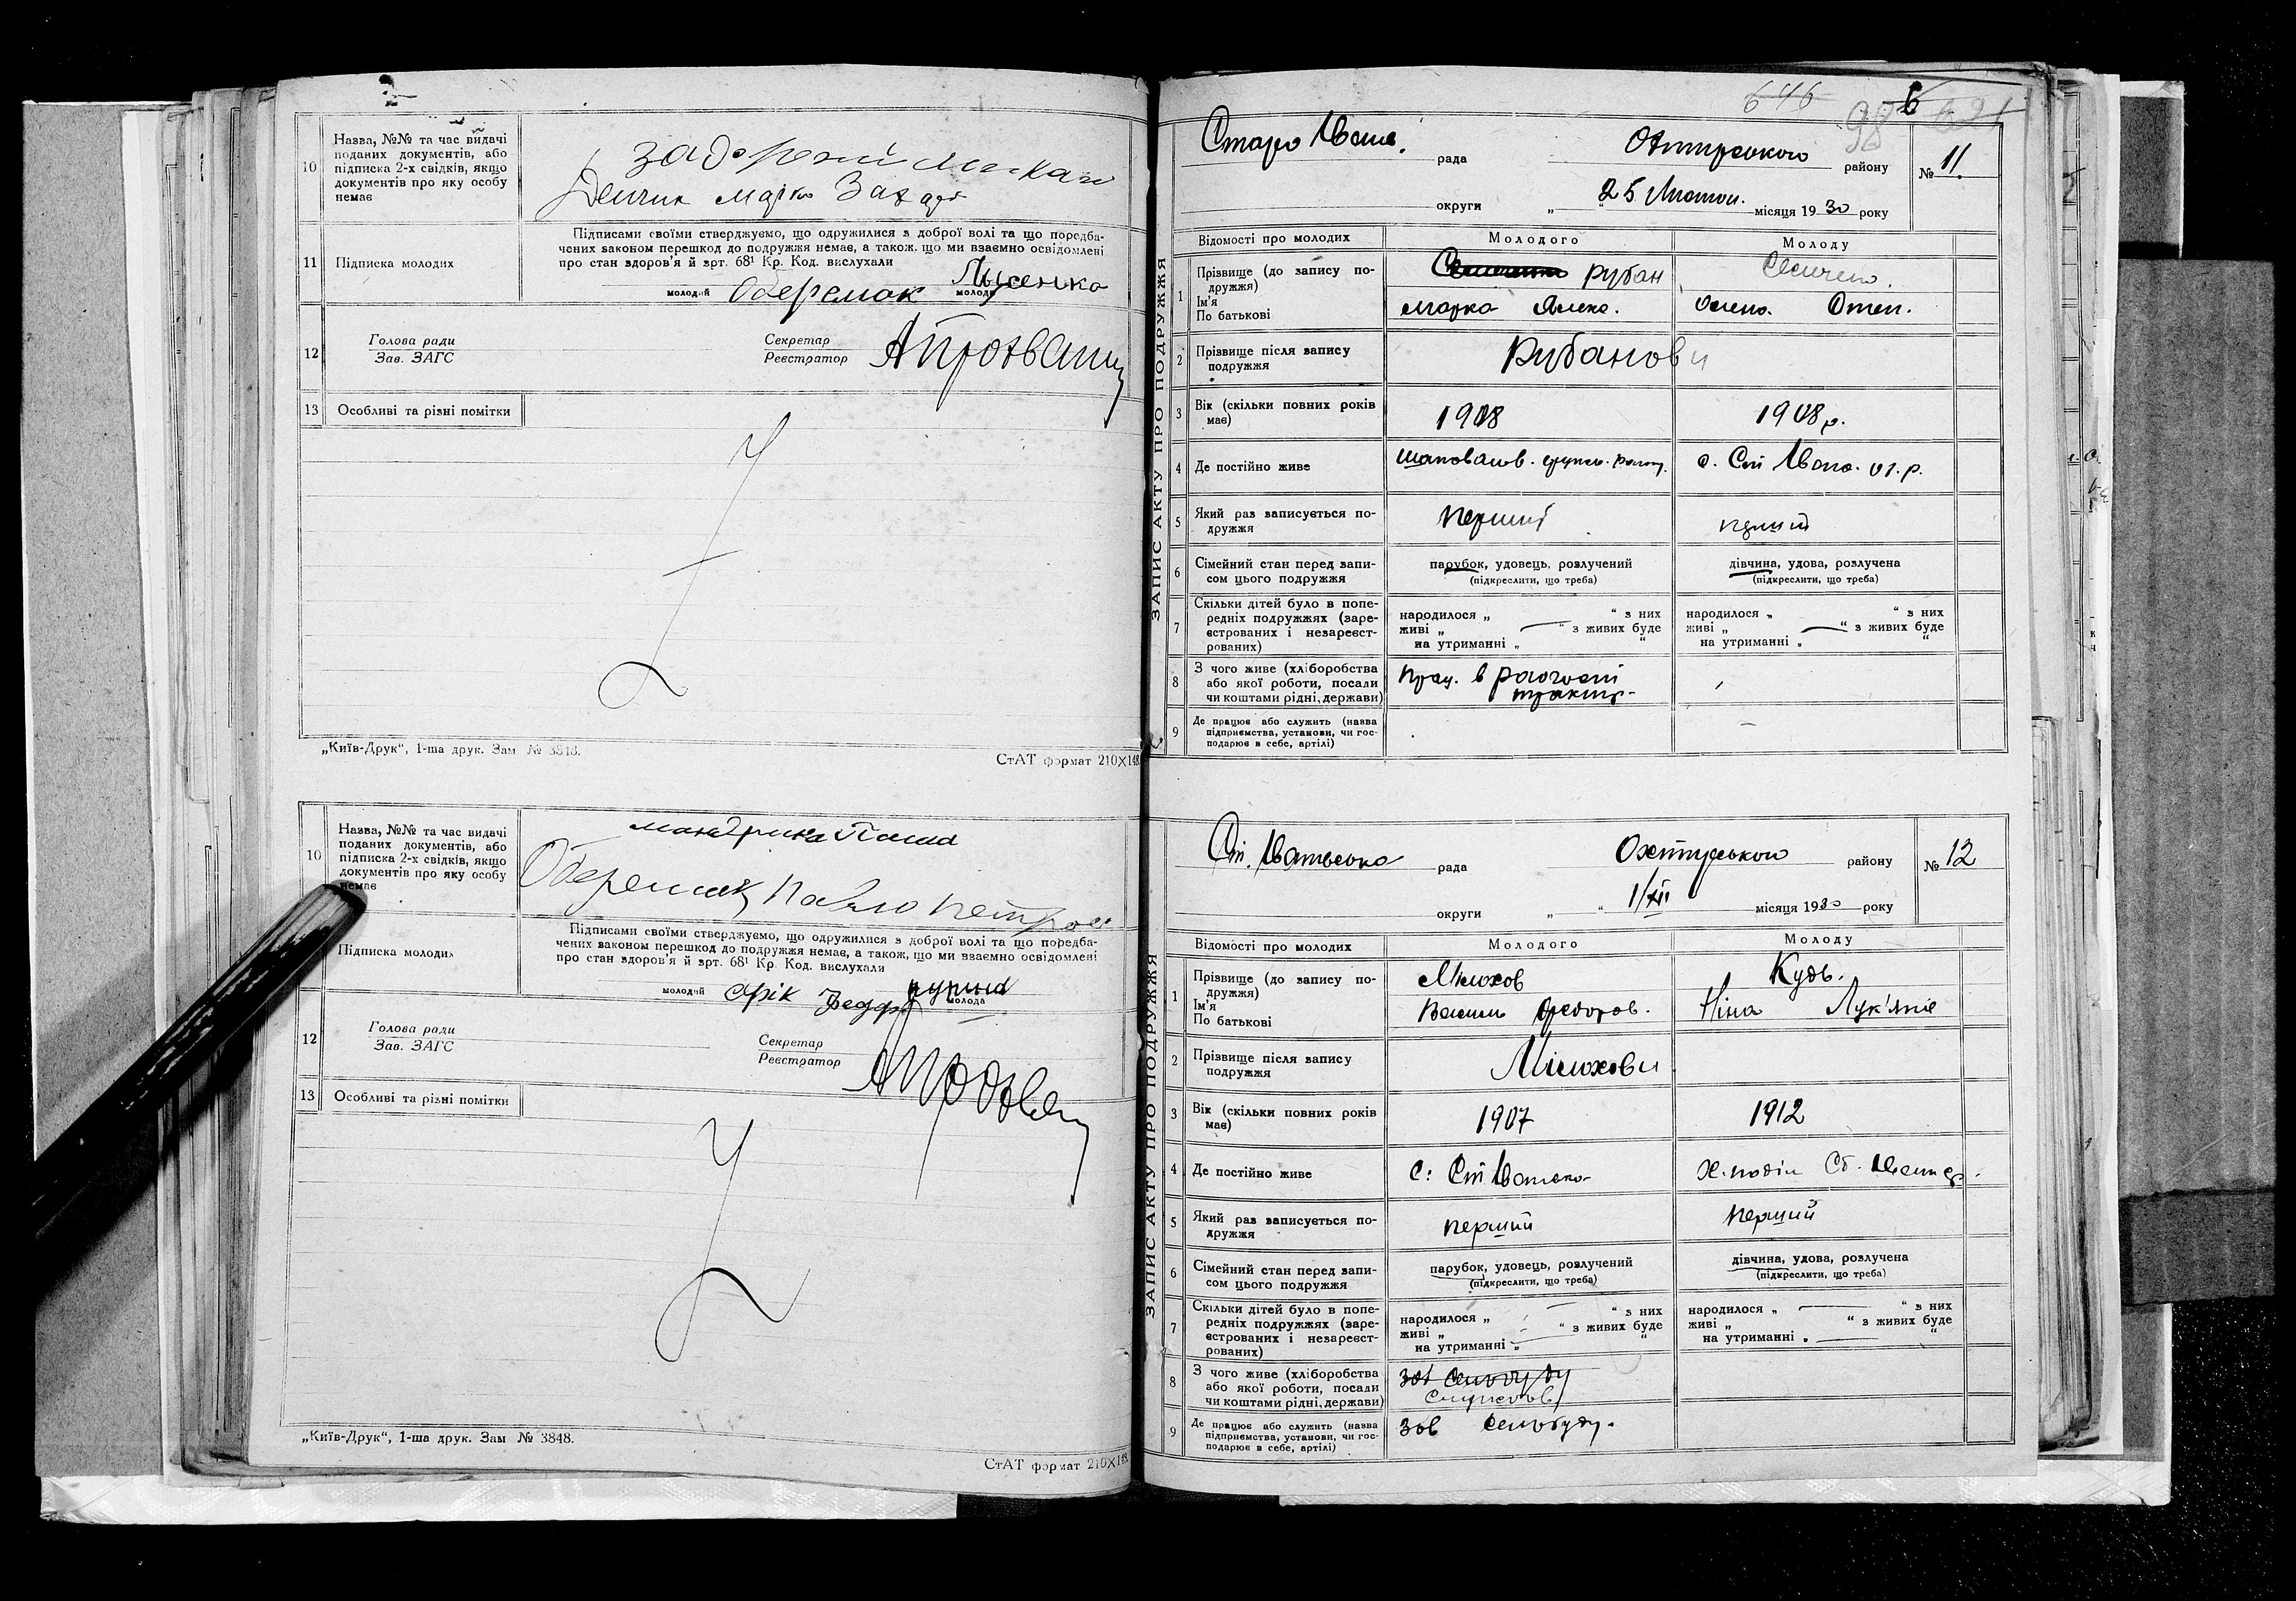 10
Назва, №№ та час видачі
поданих документів, або
підписка 2-х свідків, якщо
документів про яку особу
немає
Денчик Марко Захар
11
Підписка молодих
Підписами своїми стверджуємо, що одружилися з доброї волі та що передба-
чених законом перешкод до подружжя немає, а також, що ми взаємно освідомлені
про стан здоров'я й арт. 68¹ Кр. Код. вислухали
молодий Оберемок молода Лисенко
12
Голова ради
Зав. ЗАГС
Секретар
Реєстратор
13
Особливі та різні помітки
„Київ-Друк“, 1-ша друк. Зам № 3848.
СтАТ формат 210X148
10
Назва, №№ та час видачі
поданих документів, або
підписка 2-х свідків, якщо
документів про яку особу
немає
Оберемок Павло Петров
Підписка молодих
Підписами своїми стверджуємо, що одружилися з доброї волі та що передба-
чених законом перешкод до подружжя немає, а також, що ми взаємно освідомлені
про стан здоров'я й арт. 68¹ Кр. Код. вислухали
молодий молода
12
Голова ради
Зав. ЗАГС
Секретар
Реєстратор
13
Особливі та різні помітки
„Київ-Друк“, 1-ша друк. Зам № 3848.
СтАТ формат 210X148
646 98 6 621
ЗАПИС АКТУ ПРО ПОДРУЖЖЯ
Старо Іван. рада Охтирського району № 11.
округи „ “ 25 Лютого місяця 1930 року
Відомості про молодих Молодого Молоду
1
Прізвище (до запису по-
дружжя)
Ім'я
По батькові
Рубан
Марко Олекс.
Олена. Степ.
2
Прізвище після запису
подружжя
Рубанови
3
Вік (скільки повних років
має)
1908
1908 р.
4
Де постійно живе
с. Ст Івано. ог.р.
5
Який раз записується по-
дружжя
перший
перший
6
Сімейний стан перед запи-
сом цього подружжя
парубок, удовець, розлучений
(підкреслити, що треба)
дівчина, удова, розлучена
(підкреслити, що треба)
7
Скільки дітей було в попе-
редніх подружжях (заре-
єстрованих і незареєст-
рованих)
народилося „ “ з них
живі „ “ з живих буде
на утриманні „ “
народилося „ “ з них
живі „ “ з живих буде
на утриманні „ “
8
З чого живе (хліборобства
або якої роботи, посади
чи коштами рідні, держави)
Прац. в
9
Де працює або служить (назва
підприємства, установи, чи гос-
подарює в себе, артілі)
ЗАПИС АКТУ ПРО ПОДРУЖЖЯ
Ст. Іванівська рада Охтирського району № 12
округи „ “ 1/XII місяця 1930 року
Відомості про молодих Молодого Молоду
1
Прізвище (до запису по-
дружжя)
Ім'я
По батькові
Мілюхов
Василь Федоров.
Кудь.
Ніна Лук'янів
2
Прізвище після запису
подружжя
Мілюхови
3
Вік (скільки повних років
має)
1907
1912
4
Де постійно живе
с. Ст Іванівка
5
Який раз записується по-
дружжя
перший
перший
6
Сімейний стан перед запи-
сом цього подружжя
парубок, удовець, розлучений
(підкреслити, що треба)
дівчина, удова, розлучена
(підкреслити, що треба)
7
Скільки дітей було в попе-
редніх подружжях (заре-
єстрованих і незареєст-
рованих)
народилося „ “ з них
живі „ “ з живих буде
на утриманні „ “
народилося „ “ з них
живі „ “ з живих буде
на утриманні „ “
8
З чого живе (хліборобства
або якої роботи, посади
чи коштами рідні, держави)
зав сельбуду
9
Де працює або служить (назва
підприємства, установи, чи гос-
подарює в себе, артілі)
Зав сельбуду.